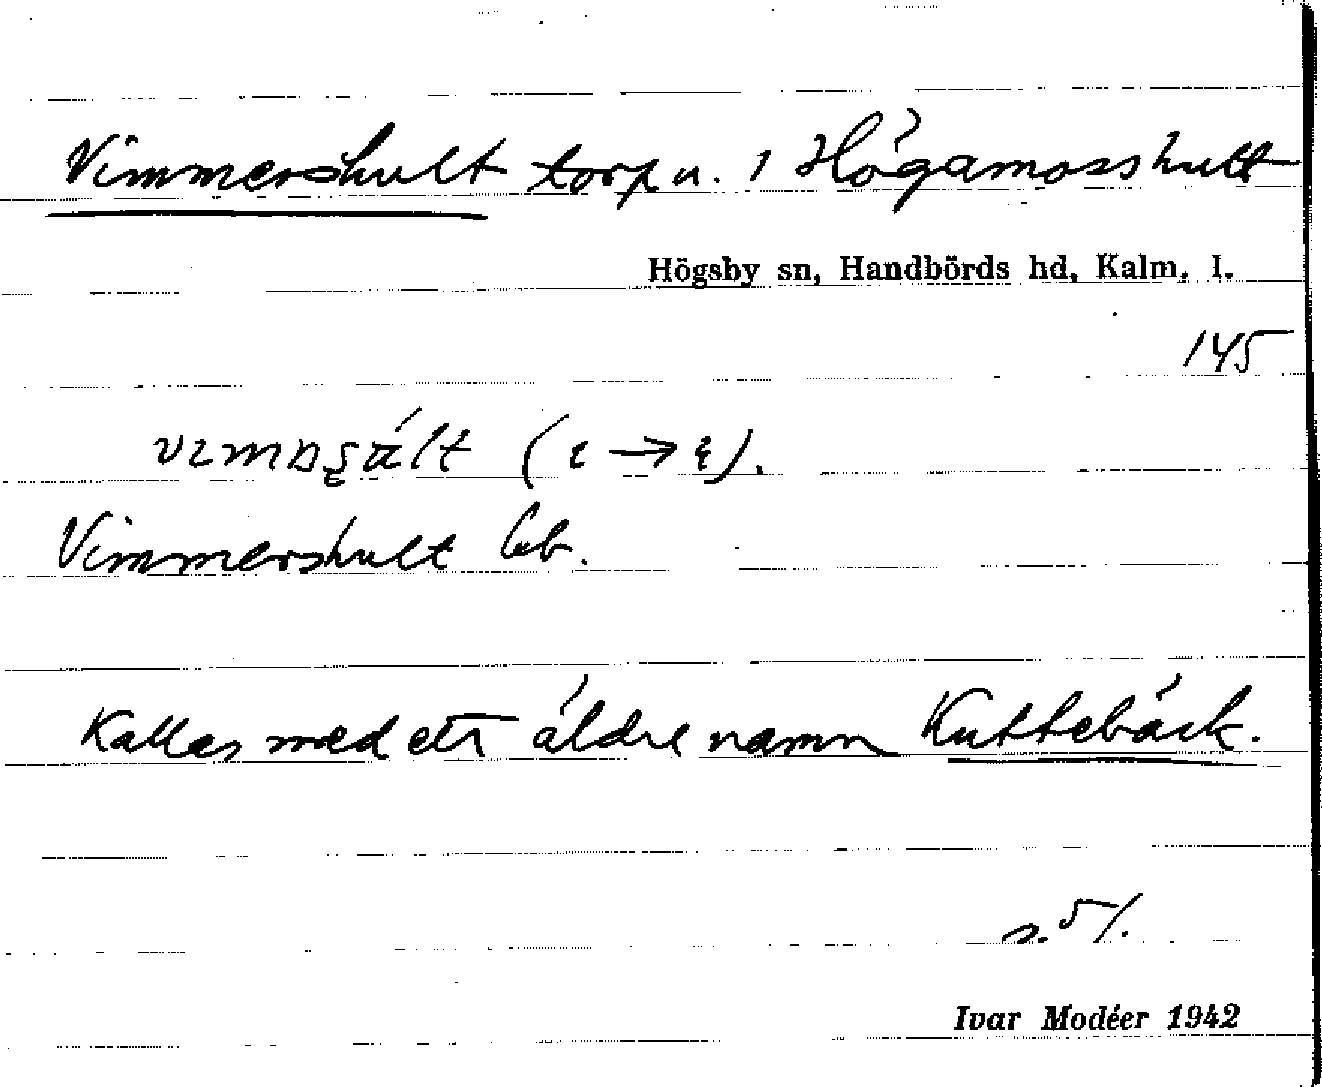 Vimmershult torp u. 1 Högamosshult
Högsby sn, Handbörds hd, Kalm. l.
145
Vimmershult Geb.
Kallas med ett äldre namn Kuttebäck.
s. 51.
Ivar Modéer 1942